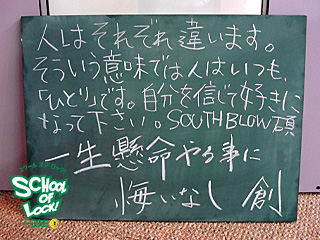 人はそれぞれ違います。
そういう意味では人はいつも、
「ひとり」です。自分を信じて好きに
なって下さい。SOUTH BLOW 碩
一生懸命やる事に
悔いなし 創
スクール オブ ロック!
SCHOOL
OF
LOCK!